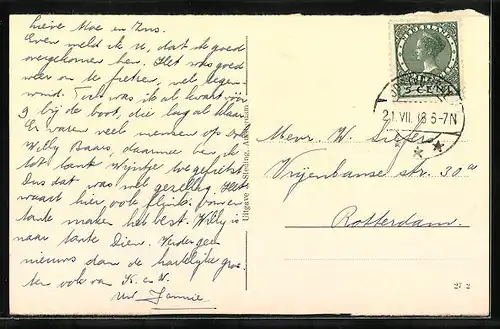 Lieve Moe en Zus.
Even meld ik U, dat ik goed
overgekomen ben. Het was goed
weer om te fietsen, wel tegen-
wind. Toch was ik al kwart vóór
9 bij de boot, die lag al klaar
Er waren veel mensen op o.a.
Willy Baars, daarmee ben ik
tot tante Wijntje toe gefietst.
Dus dat was wel gezellig. Het
waait hier ook flink. Oom en
tante maken het best. Willy is
naar tante Dien. Verder geen
nieuws dan de hartelijke groe-
ten ook van K. en W.
Uw Jannie.
Uitgave
Amsterdam
NEDERLAND
5 CENT
21.VII. 8 5-7N
Mevr. W.
Vrijenbanse str. 30a
Rotterdam.
27 2